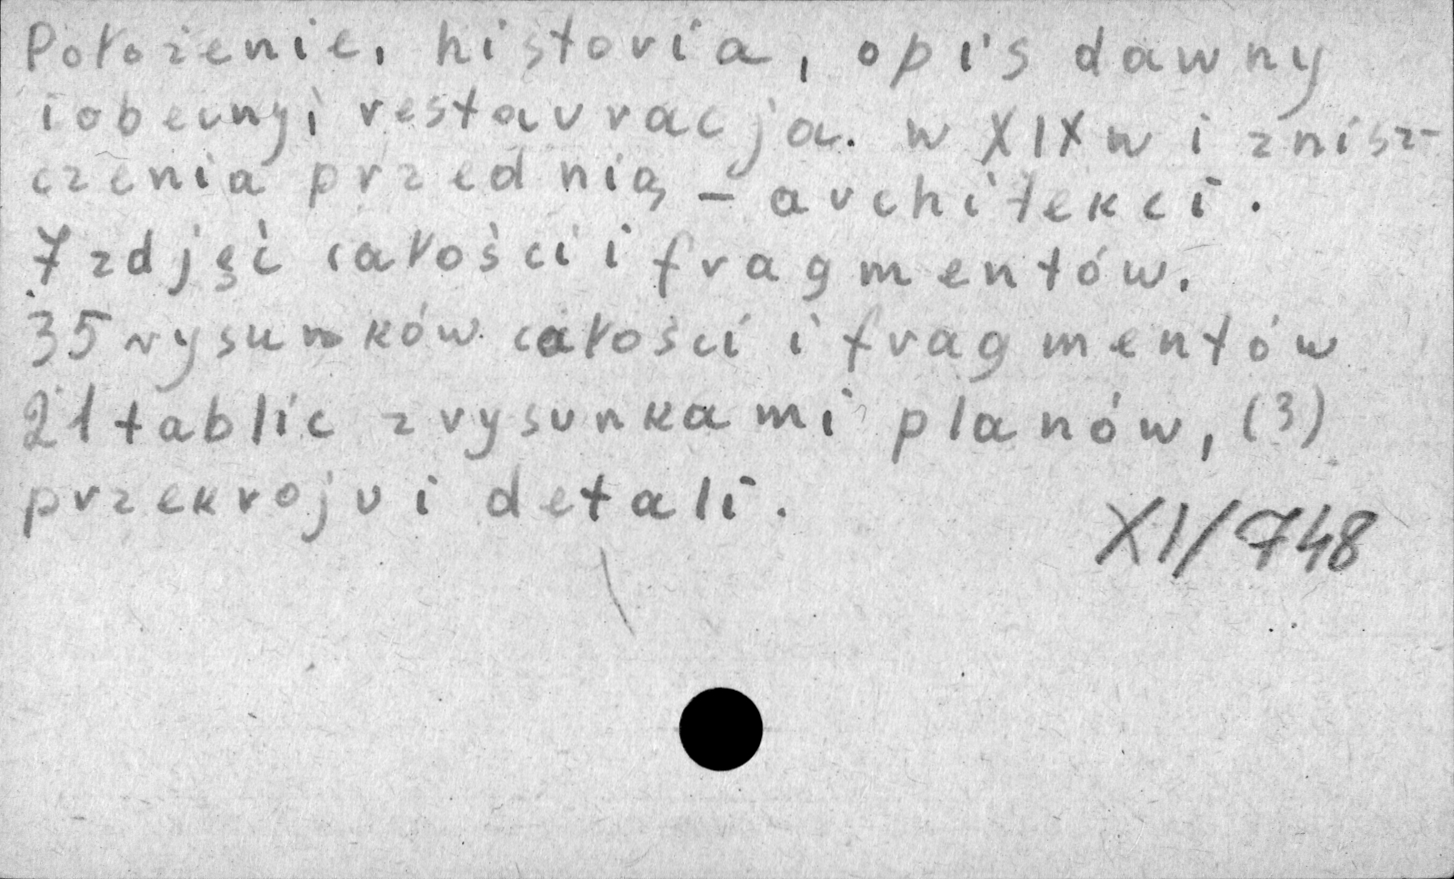 Położenie, historia, opis dawny
i obecnyi restauracja. w XIX w i znisz-
czenia przed nią – architekci.
7 zdjęć całości i fragmentów.
35 rysunków całości i fragmentów
21 tablic z rysunkami planów, (3)
przekroju i detali.
XI/748